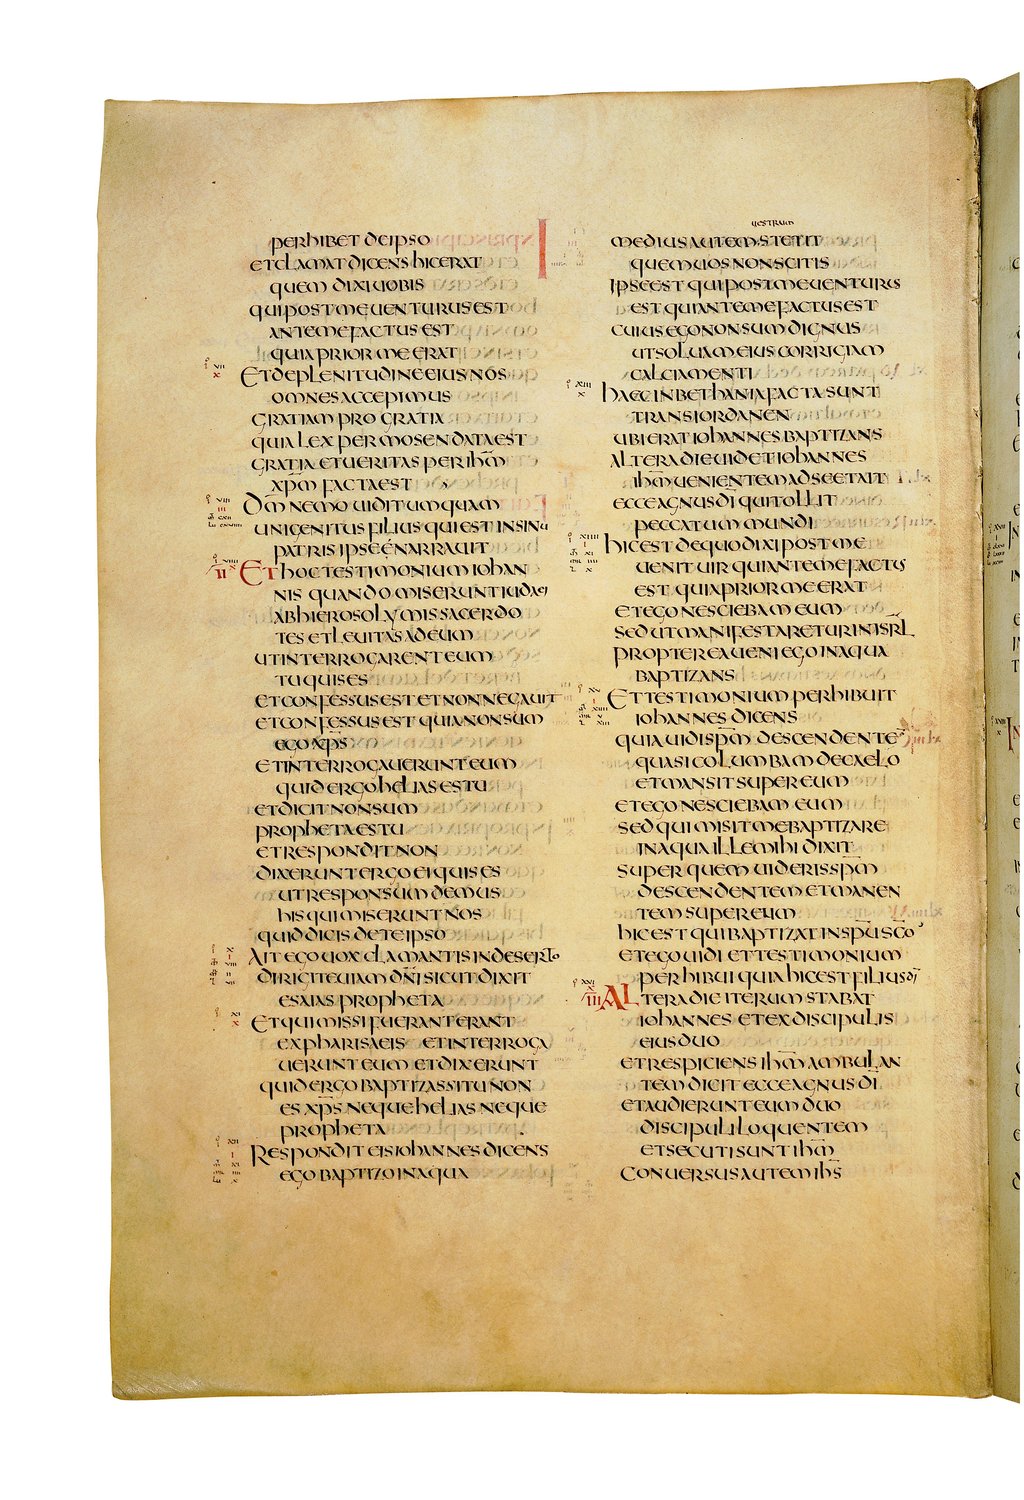 perhibet de ipso
et clamat dicens hic erat
quem dixi uobis
qui post me uenturus est
ante me factus est
quia prior me erat
Et de plenitudine eius nos
omnes accepimus
gratiam pro gratia
quia lex per mosen data est
gratia et ueritas per ihm̄
xpm̄ facta est
Dm̄ nemo uidit umquam
unigenitus filius qui est in sinu
patris ipse enarrauit
Et hoc testimonium iohan
nis quando miserunt iudaei
ab hierosolymis sacerdo
tes et leuitas ad eum
ut interrogarent eum
tu quis es
et confessus est et non negauit
et confessus est quia non sum
ego xp̄s
et interrogauerunt eum
quid ergo helias es tu
et dicit non sum
propheta es tu
et respondit non
dixerunt ergo ei quis es
ut responsum demus
his qui miserunt nos
quid dicis de te ipso
Ait ego uox clamantis in deserto
dirigite uiam dn̄i sicut dixit
esaias propheta
Et qui missi fuerant erant
ex pharisaeis et interroga
uerunt eum et dixerunt
quid ergo baptizas si tu non
es xp̄s neque helias neque
propheta
Respondit eis iohannes dicens
ego baptizo in aqua
uestrum
medius autem stetit
quem uos non scitis
ipse est qui post me uenturus
est qui ante me factus est
cuius ego non sum dignus
ut soluam eius corrigiam
calciamenti
haec in bethania facta sunt
trans iordanen
ubi erat iohannes baptizans
altera die uidet iohannes
ihm̄ uenientem ad se et ait
ecce agnus dī qui tollit
peccatum mundi
hic est de quo dixi post me
uenit uir qui ante me factus
est quia prior me erat
et ego nesciebam eum
sed ut manifestaretur in isrl̄
propterea ueni ego in aqua
baptizans
Et testimonium perhibuit
iohannes dicens
quia uidi spm̄ descendentem
quasi columbam de caelo
et mansit super eum
et ego nesciebam eum
sed qui misit me baptizare
in aqua ille mihi dixit
super quem uideris spm̄
descendentem et manen
tem super eum
hic est qui baptizat in spu̅ sc̅o
et ego uidi et testimonium
perhibui quia hic est filius dī
Altera die iterum stabat
iohannes et ex discipulis
eius duo
et respiciens ihm̄ ambulan
tem dicit ecce agnus dī
et audierunt eum duo
discipuli loquentem
et secuti sunt ihm̄
Conuersus autem ihs̄